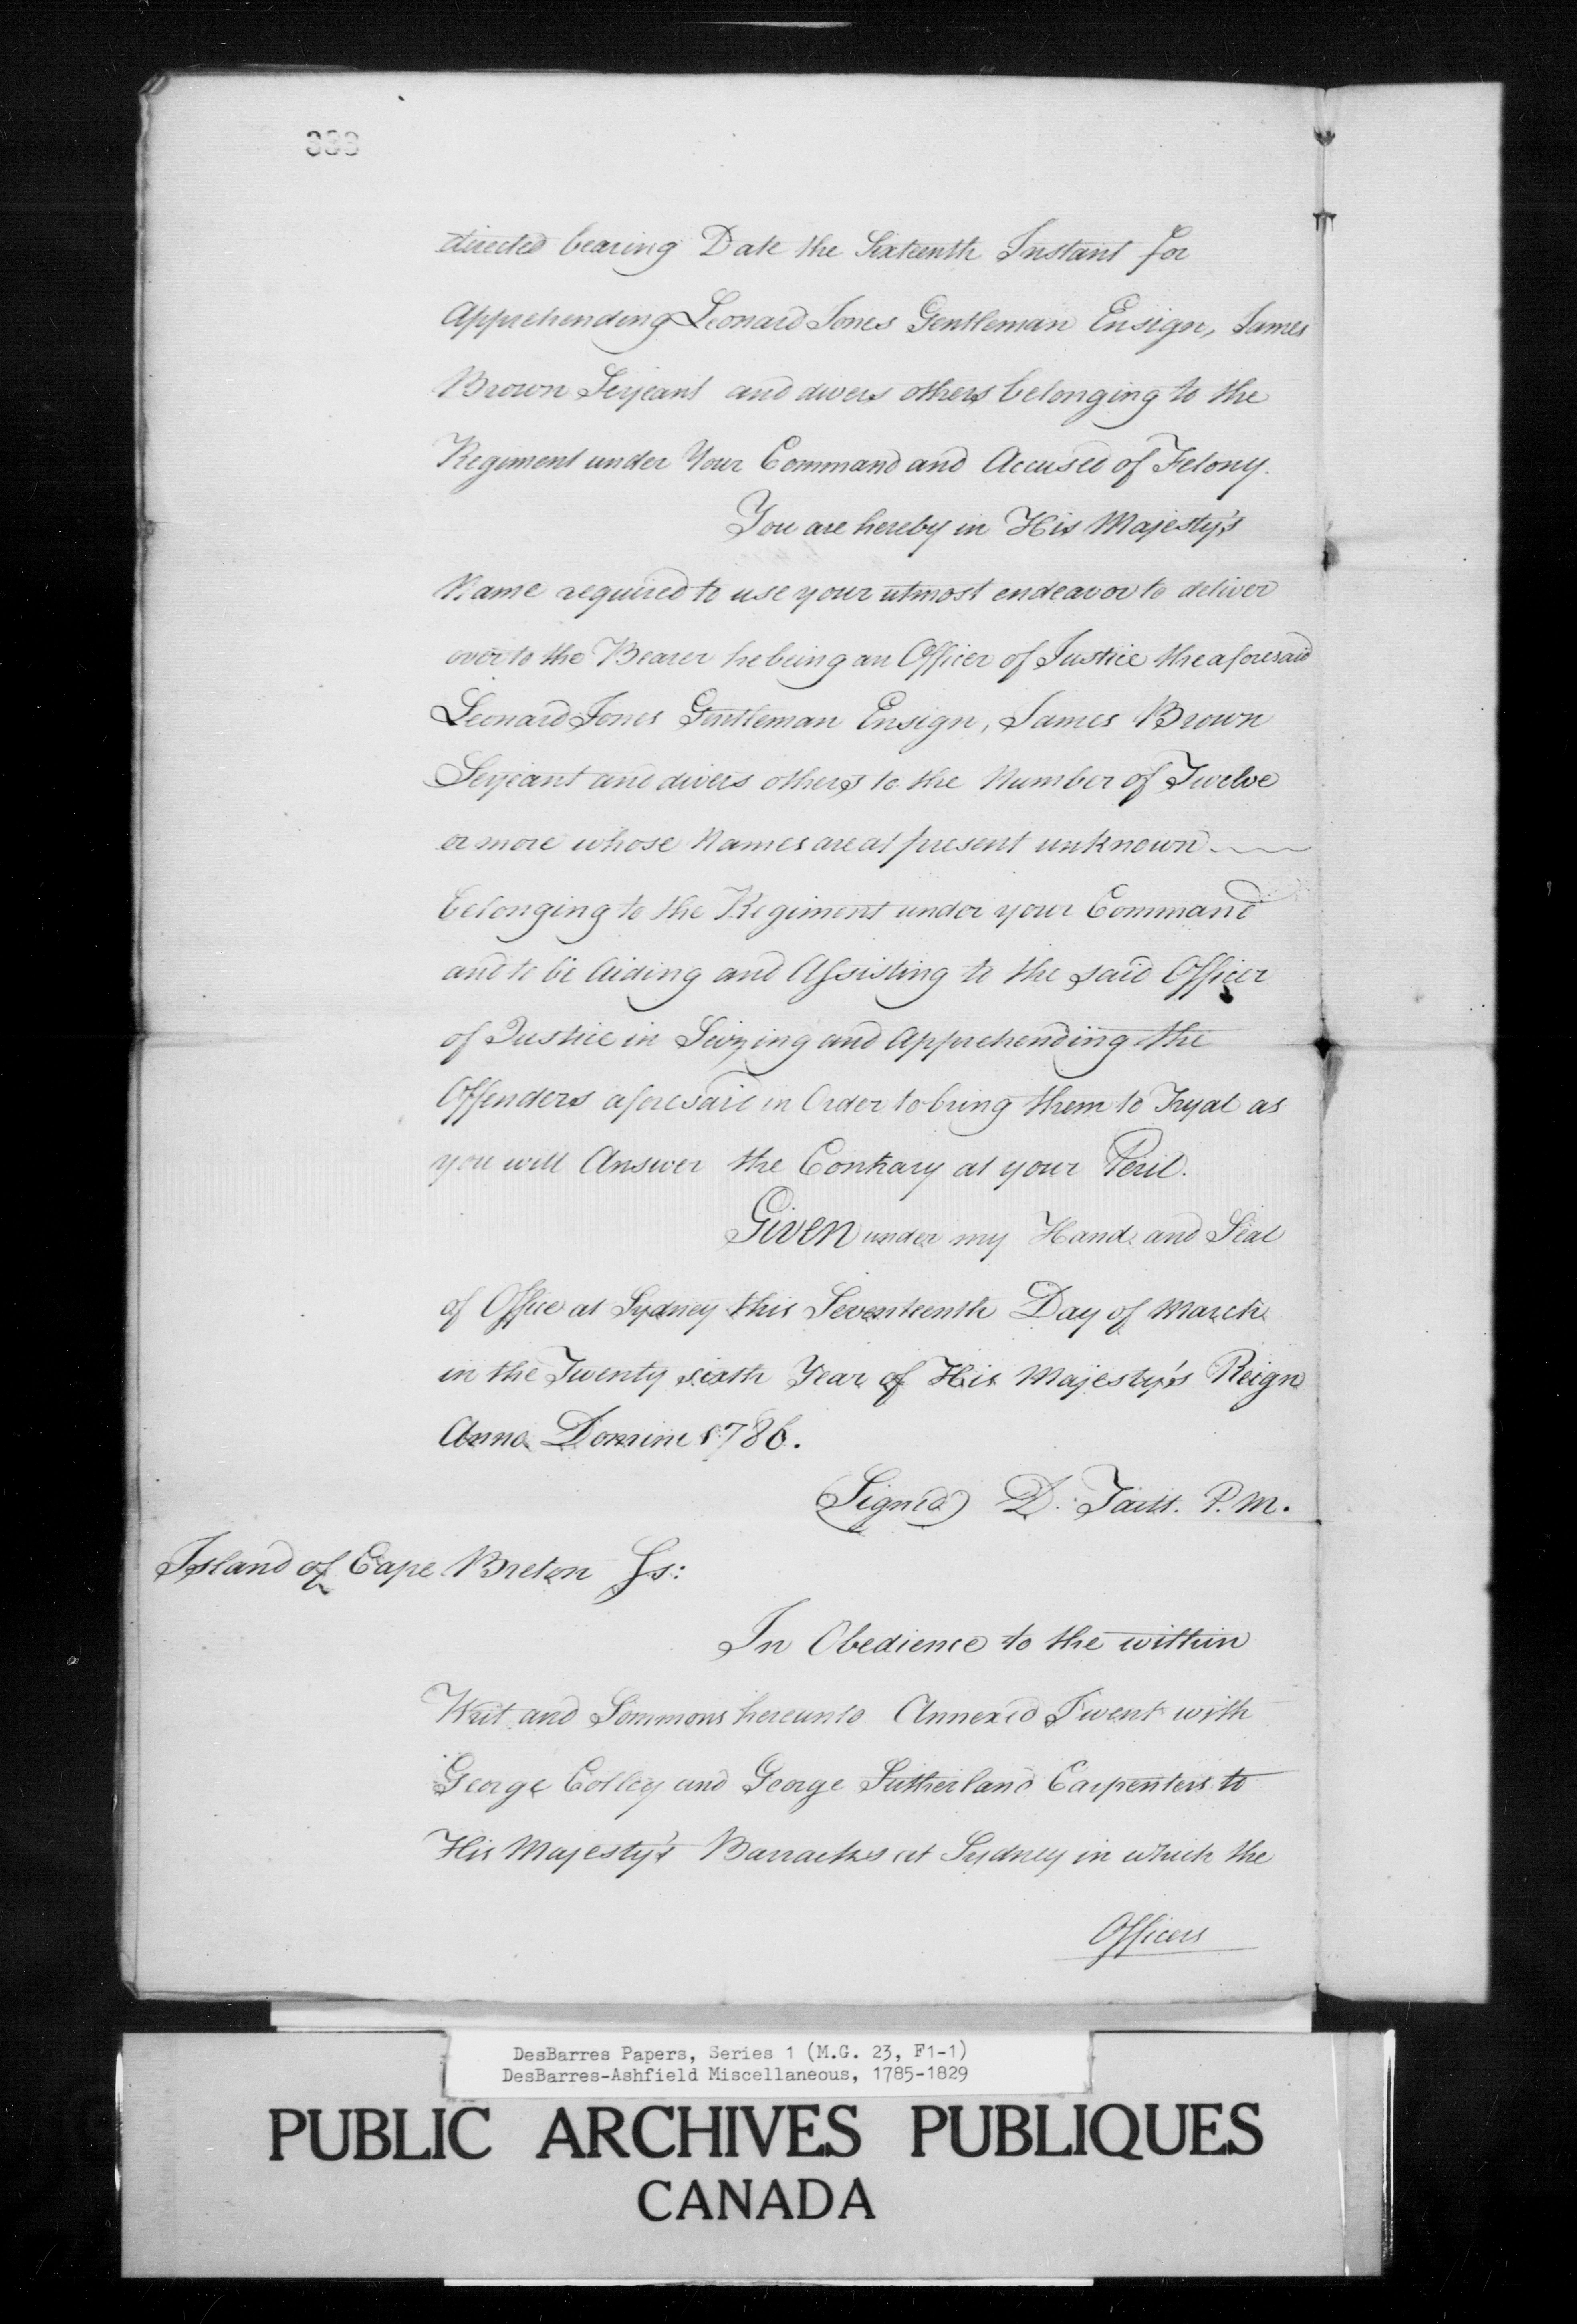 333
directed bearing Date the Sixteenth Instant for
Apprehending Leonard Jones Gentleman Ensign, James
Brown Serjeant and divers others belonging to the
Regiment under Your Command and Accused of Felony.
You are hereby in His Majesty's
Name required to use your utmost endeavor to deliver
over to the Bearer he being an Officer of Justice the aforesaid
Leonard Jones Gentleman Ensign, James Brown
Serjeant and divers others to the Number of Twelve
or more whose Names are at present unknown
belonging to the Regiment under your Command
and to be Aiding and Assisting to the said Officer
of Justice in Seizing and Apprehending the
Offenders aforesaid in Order to bring them to Tryal as
you will Answer the Contrary at your Peril.
Given under my Hand and Seal
of Office at Sydney this Seventeenth Day of March
in the Twenty sixth Year of His Majesty's Reign
Anno Domini 1786.
(Signed) D. Taitt. P.M.
Island of Cape Breton Ss:
In Obedience to the within
Writ and Sommons hereunto Annexed I went with
George Colley and George Sutherland Carpenters to
His Majesty's Barracks at Sydney in which the
Officers
DesBarres Papers, Series 1 (M.G. 23, F1-1)
DesBarres-Ashfield Miscellaneous, 1785-1829
PUBLIC ARCHIVES PUBLIQUES
CANADA